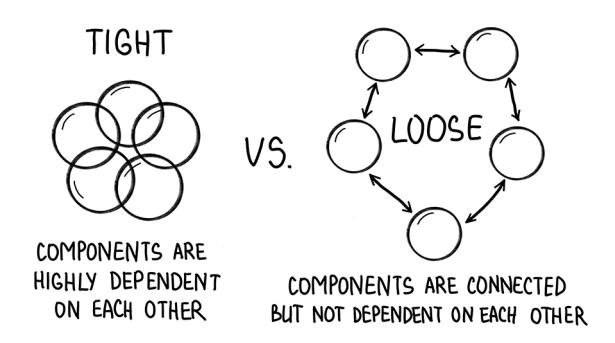 TIGHT
COMPONENTS ARE
HIGHLY DEPENDENT
ON EACH OTHER
VS.
LOOSE
COMPONENTS ARE CONNECTED
BUT NOT DEPENDENT ON EACH OTHER